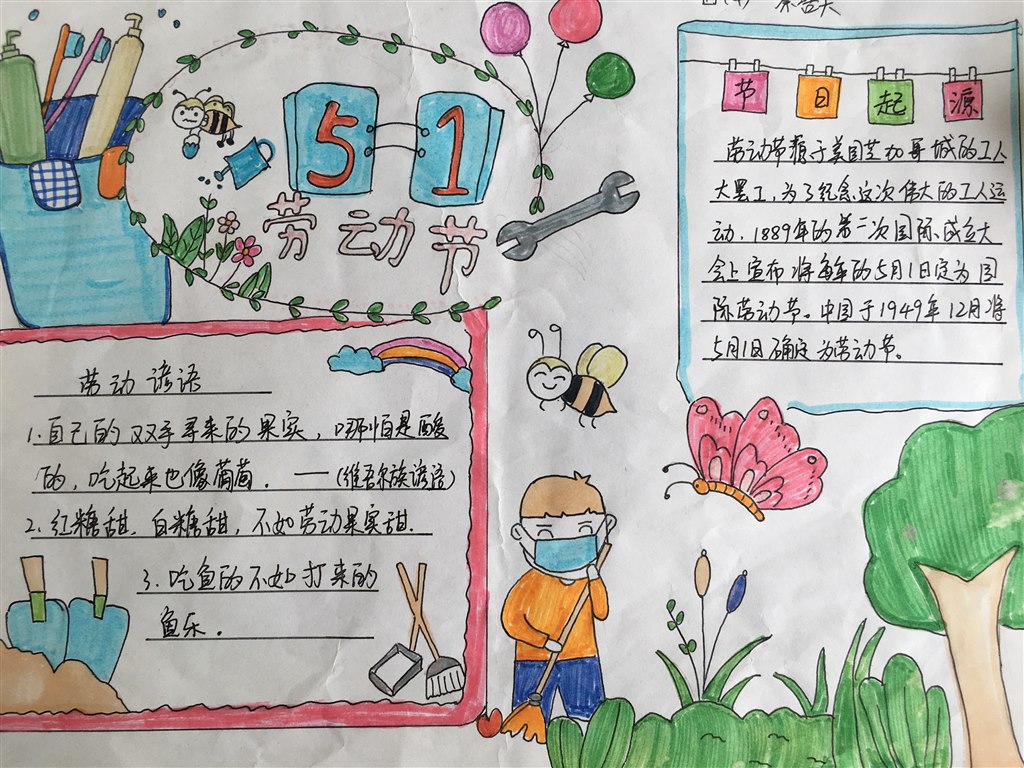 51
劳动节
节日起源
劳动节源于美国芝加哥城的工人
大罢工,为了纪念这次伟大的工人运
动.1889年的第二次国际成立大
会上宣布将每年的5月1日定为国
际劳动节。中国于1949年12月将
5月1日确定为劳动节。
劳动谚语
1.自己的双手寻来的果实,哪怕是酸
的,吃起来也像葡萄.——(维吾尔族谚语)
2.红糖甜,白糖甜,不如劳动果实甜.
3.吃鱼的不如打来的
鱼乐.